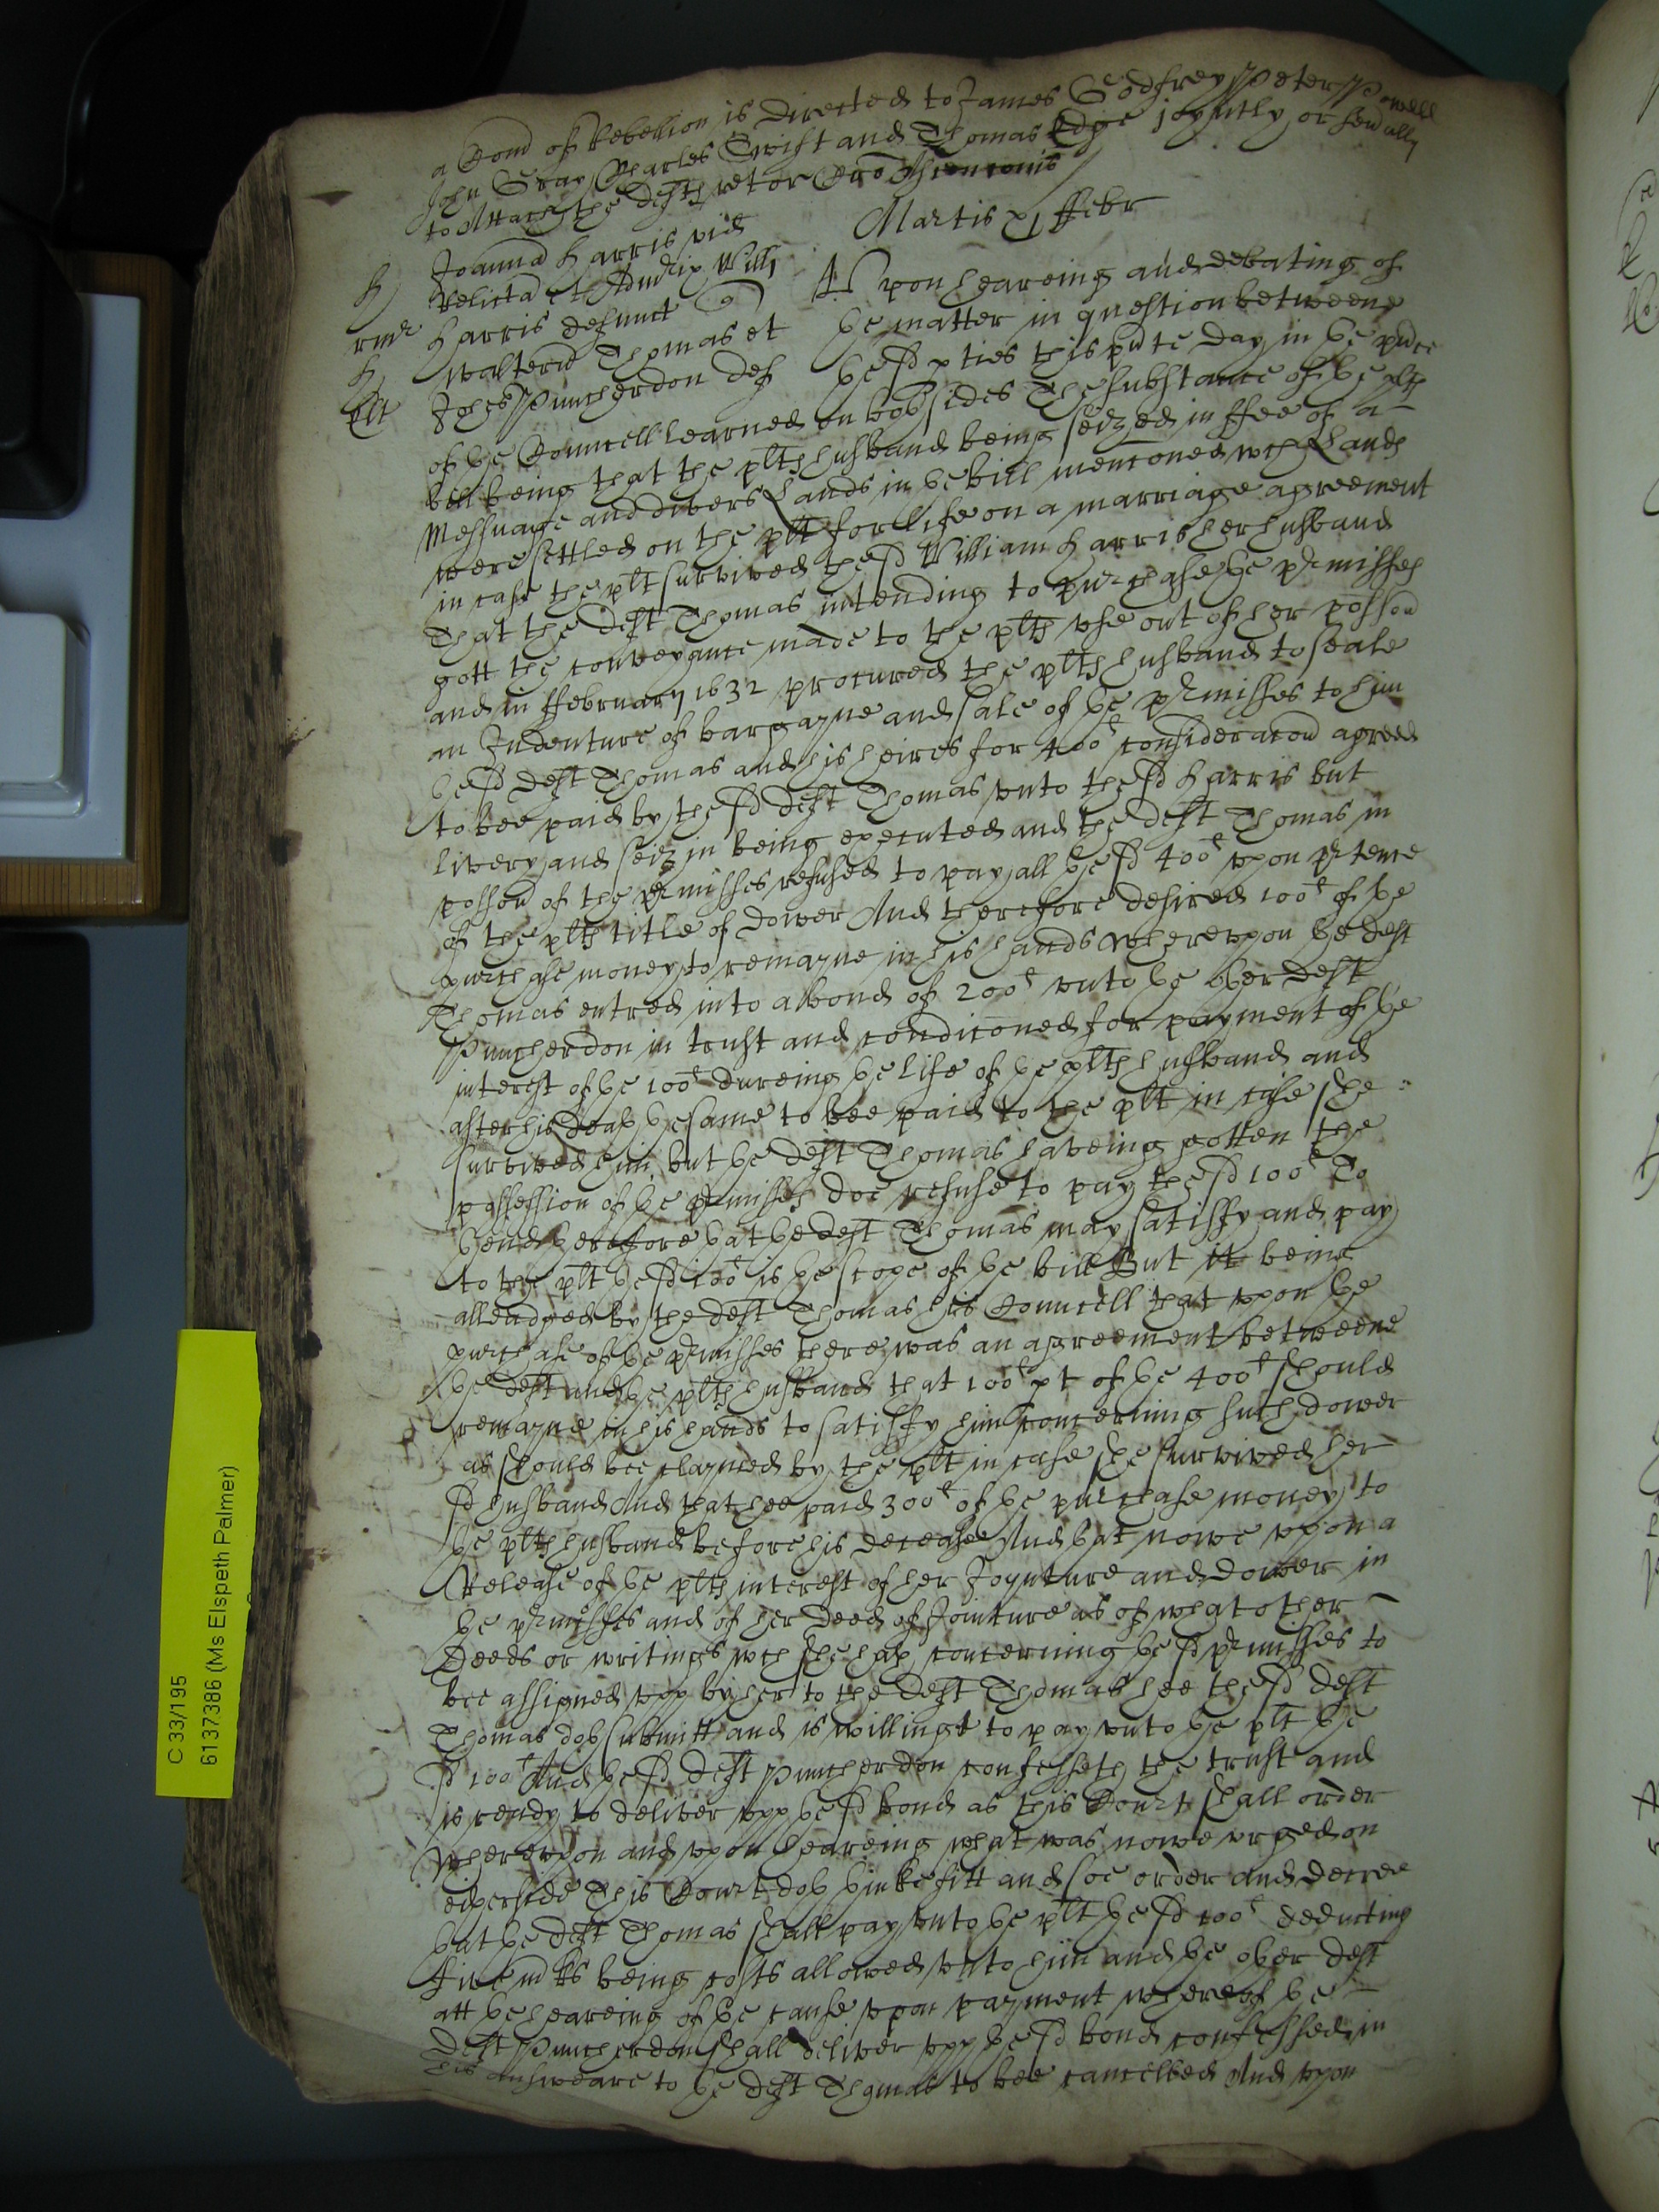 a Com̄ of Rebellion is directed to James Godfrey Peter Powell
John Gray Charles Swift and Thomas Edge joyntly or sev̄ally
to Attach the defts
Martis xj ffebr
H Joanna Harris vid
Relicta et Adm̄trix Willi
Harris defunct
Walterus Thomas et
Johes Puncherdon def
plt
Vpon heareing and debating of
þe matter in question betweene
þe sd pties this pn̄te day in þe pn̄ce
of þe Councell learned on boþ sides The substance of þe plts
bill being that the plts husband being seized in ffee of a
Messuage and divers Lands in þe bill menconed wch Lands
were settled on the plt for life on a marriage agreement
in case the plt survived the sd William Harris her husband
That the deft Thomas intending to purchase þe pr̄misses
gott the conveyance made to the plts vse out of her possion
and in ffebruary 1632 procured the plts husband to seale
an Indenture of bargayne and sale of þe pr̄misses to him
þe sd deft Thomas and his heires for 400l consideracon agreed
to bee paid by the sd deft Thomas vnto the sd Harris but
livery and seizin being executed and the deft Thomas in
possion of the pr̄misses refused to pay all þe sd 400l vpon pr̄tence
of the plts title of dower And therefore desired 100l of þe
purchase money to remayne in his hands Wherevpon þe deft
Thomas entred into a bond of 200l vnto þe oþer deft
Puncherdon in trust and condiconed for payment of þe
interest of þe 100l dureing þe life of þe plts husband and
after his deaþ þe same to bee paid to the plt in case she
survived him but þe deft Thomas haveing gotten the
possession of þe pr̄misses doe refuse to pay the sd 100l To
þend þerefore þat þe deft Thomas may satisfy and pay
to the plt þe sd 100l is þe scope of þe bill But it being
alleadged by the deft Thomas his Councell that vpon þe
purchase of þe pr̄misses there was an agreement betweene
þe deft and þe plts husband that 100l pt of þe 400l should
remayne in his hands to satisfy him concerning such dower
as should bee claymed by the plt in case she survived her
sd husband And that hee paid 300l of þe purchase money to
þe plts husband before his decease And þat nowe vpon a
Release of þe plts interest of her Joynture and dower in
þe pr̄misses and of her deed of Jointure as of what other
Deeds or writings wch she haþ concerning þe sd pr̄misses to
bee assigned vpp by her to the deft Thomas hee the sd deft
Thomas doþ submitt and is willing to pay vnto þe plt þe
sd 100l And þe sd deft Puncherdon confesseth the trust and
is ready to deliver vpp þe sd bond as this Court shall order
Wherevpon and vpon heareing what was nowe vrged on
eiþer side This Court doþ þinke fitt and soe order and decree
þat þe deft Thomas shall pay vnto þe plt þe sd 100l deducting
five mks being costs allowed vnto him and þe oþer deft
att þe heareing of þe cause vpon payment whereof þe
Deft Puncherdon shall deliver vpp þe sd bond confessed in
his answeare to þe deft Thomas to bee cancelled And vpon
C 33/195
6137386 (Ms Elspeth Palmer)